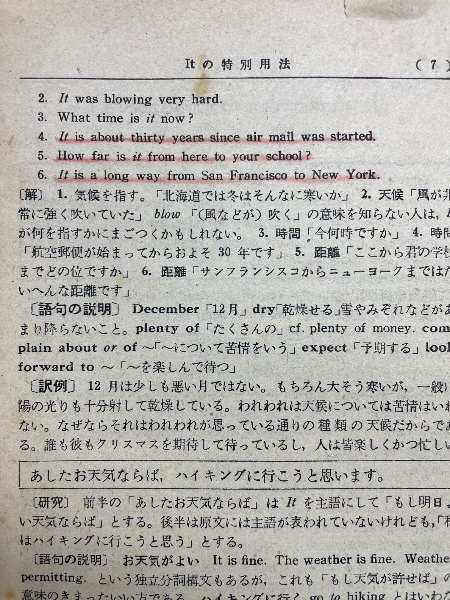 Itの特別用法 (7)
2. It was blowing very hard.
3. What time is it now?
4. It is about thirty years since air mail was started.
5. How far is it from here to your school?
6. It is a long way from San Francisco to New York.
〔解〕 1. 気候を指す。「北海道では冬はそんなに寒いか」 2. 天候「風が非
常に強く吹いていた」 blow「(風などが)吹く」の意味を知らない人は,
が何を指すかにまごつくかもしれない。 3. 時間「今何時ですか」 4. 時間
「航空郵便が始まってからおよそ30年です」 5. 距離「ここから君の学校
までどの位ですか」 6. 距離「サンフランシスコからニューヨークまではた
いへんな距離です」
〔語句の説明〕 December「12月」dry「乾燥せる」雪やみぞれなどがあ
まり降らないこと。plenty of「たくさんの」cf. plenty of money. com-
plain about or of ~「~について苦情をいう」expect「予期する」look
forward to ~「~を楽しんで待つ」
〔訳例〕 12月は少しも悪い月ではない。もちろん大そう寒いが,一般に
陽の光りも十分射して乾燥している。われわれは天候については苦情はいわ
ない。なぜならそれはわれわれが思っている通りの種類の天候だからであ
る。誰も彼もクリスマスを期待して待っているし,人は皆楽しくかつ忙しい
あしたお天気ならば,ハイキングに行こうと思います。
〔研究〕 前半の「あしたお天気ならば」は It を主語にして「もし明日よ
い天気ならば」とする。後半は原文には主語が表われていないけれども,「私
はハイキングに行こうと思う」とする。
〔語句の説明〕 お天気がよい It is fine. The weather is fine. Weather
permitting. という独立分詞構文もあるが,これも「もし天気が許せば」の
意味のきまったいい方である。ハイキングに行く go to hiking とはいわな